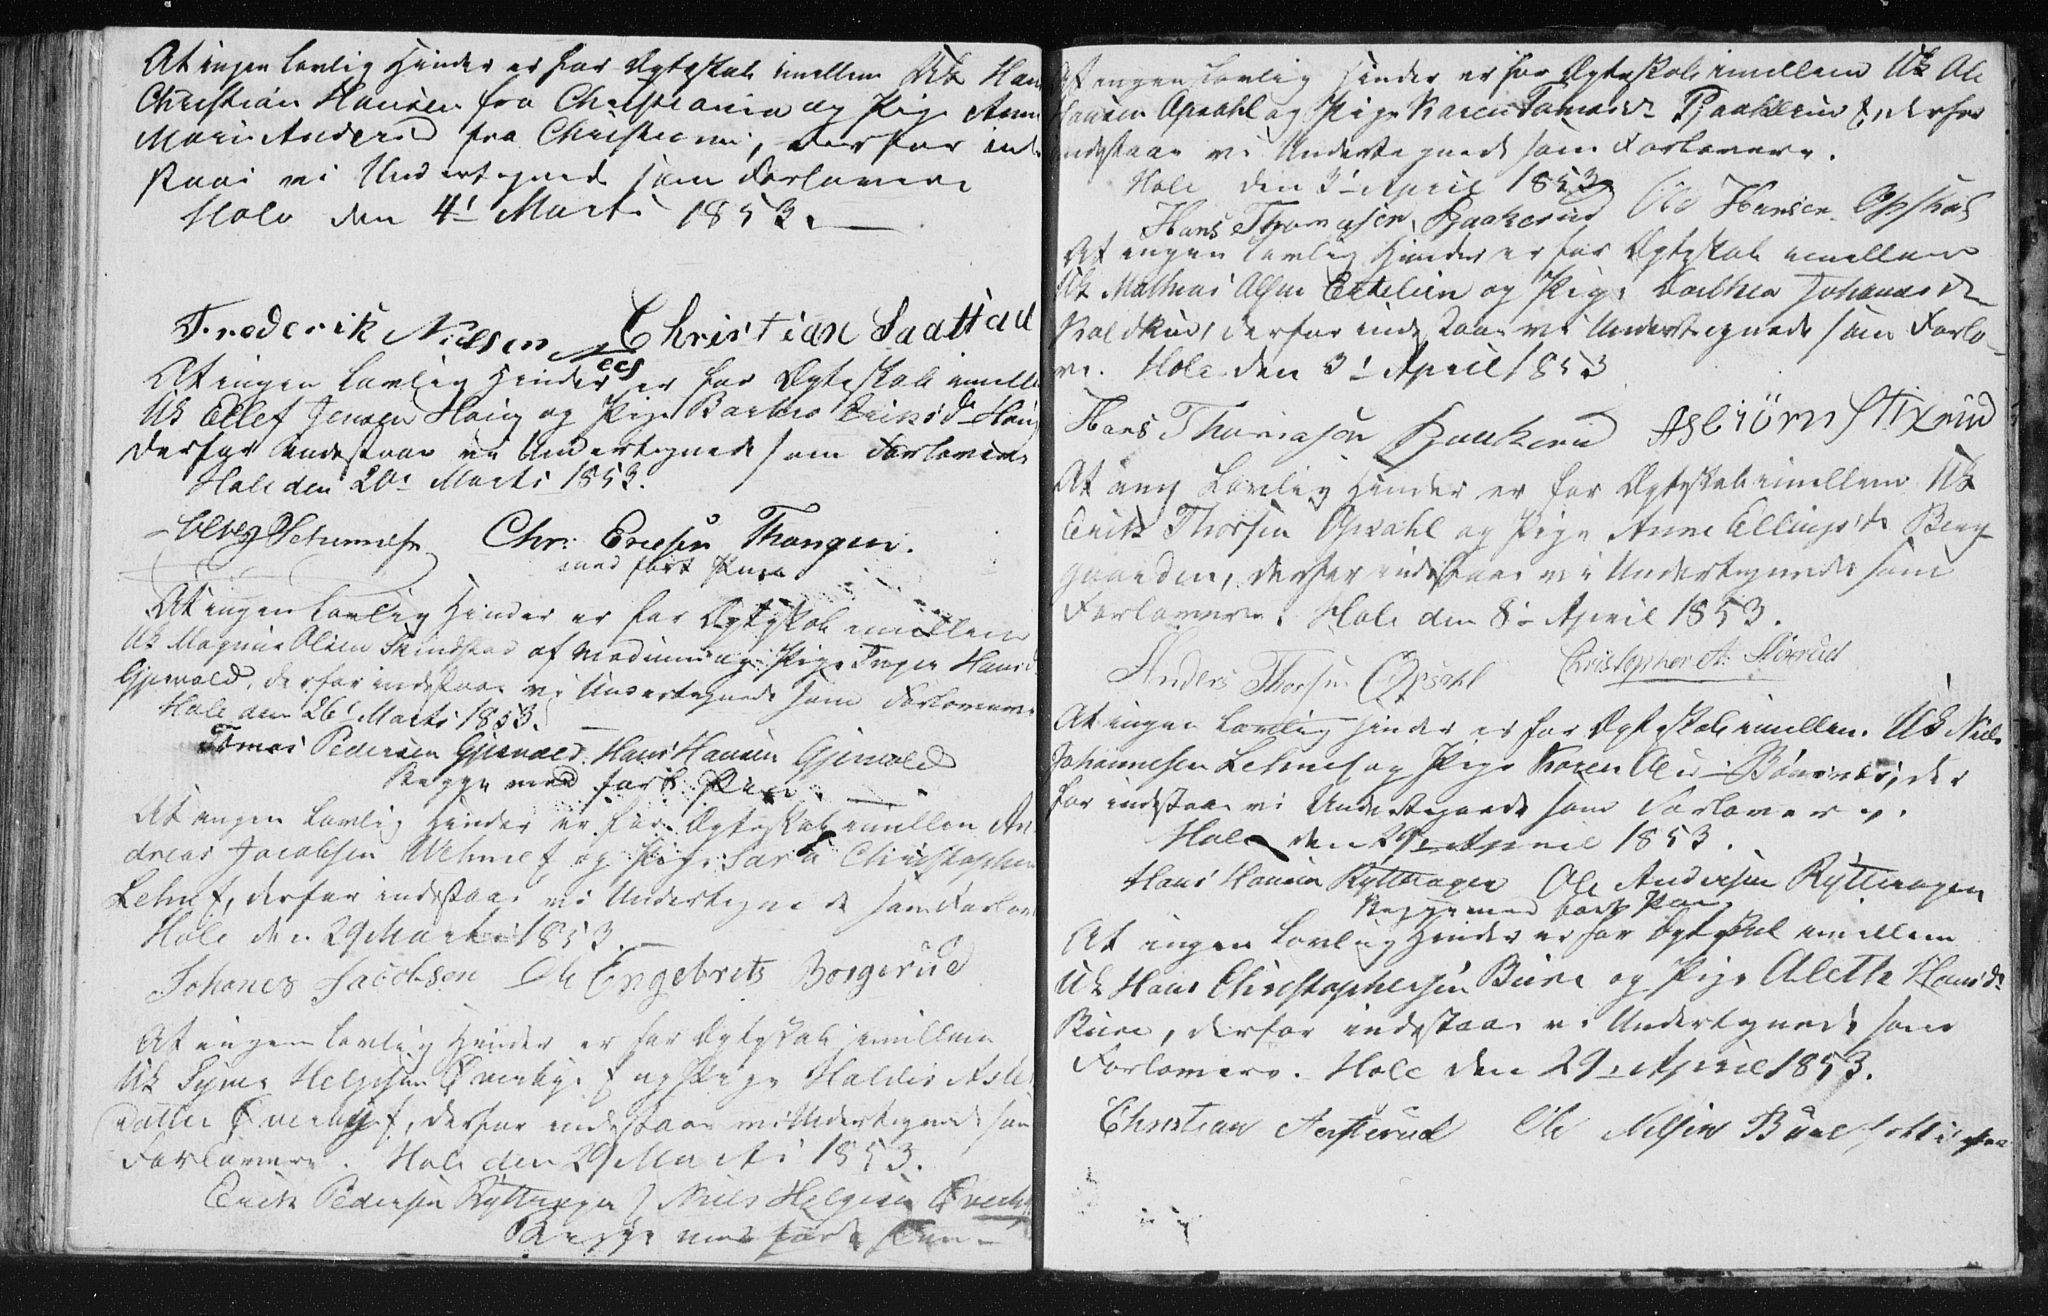 At ingen lovlig Hinder er for Ægteskab imellem Uk Han
Christian Hansen fra Christiania og Pige Anne
Marie Andersd fra Christiania, derfor ind
staae vi Undertegnede som Forlovere
Hole den 4' Marts 1853.
Frederik Nielsen Christian Saattad
At ingen lovlig Hinder er for Ægteskab imelle
Uk Ellef Jensen Haug og Pige Barbro Eriksd Haug
derfor indestaae vi Undertegnede som Forlovere
Hole den 20' Marts 1853.
Chr: Ericsen Thangen.
med ført Pen
At ingen lovlig Hinder er for Ægteskab imellem
Uk Magnus Olsen af Modum og Pige Inger Hansd
Gjesvold, derfor indestaae vi Undertegnede som Forlovere
Hole den 26' Marts 1853.
Tomas Pedersen Gjesvold. Hans Hansen Gjesvold
Begge med ført Pen.
At ingen lovlig Hinder er for Ægteskab imellem An
dreas Jacobsen og Pige Sara Christophers
derfor indestaae vi Undertegnede som Forlov
Hole den 29 Marts 1853.
Johanes Jacobsen Ole Engebrets Borgerud
At ingen lovlig Hinder er for Ægteskab imellem
Uk Syver Helgesen Øverby og Pige Haldis Asle
datter Øverby, derfor indestaae vi Undertegnede som
Forlovere. Hole den 29 Marts 1853.
Erik Pedersen Rytterager Niels Helgesen Øverby
Begge med ført Pen
At ingen lovlig Hinder er for Ægteskab imellem Uk Ole
Hansen Opsahl og Pige Karen Tomasd Bjaakerud, derfor
indestaae vi Undertegnede som Forlovere.
Hole den 3' April 1853
Hans Thomasen Bjaakerud Ole Hansen Opshal
At ingen lovlig Hinder er for Ægteskab imellem
Uk Mathias Olsen og Pige Dorthea Johannesd
derfor indestaae vi Undertegnede som Forlo-
vere. Hole den 3' April 1853
Hans Thomasen Bjaakerud Asbiörn Stixrud
At ing Lovlig Hinder er for Ægteskab imellem Uk
Erik Thorsen Opsahl og Pige Anne Ellingsd Berg
gaarden, derfor indestaae vi Undertegnede som
Forlovere. Hole den 8' April 1853.
Anders Thorsen Opsahl Christopher A. Stixrud
At ingen Lovlig Hinder er for Ægteskab imellem Uk Niels
Johannesen og Pige Karen Olsd Bönsnæs, der
for indestaae vi Undertegnede som Forlovere.
Hole den 29' April 1853.
Hans Hansen Rytterager Ole Andersen Rytteragen
Begge med ført Pen.
At ingen Lovlig Hinder er for Ægteskab imellem
Uk Hans Christophersen Bure og Pige Aleth Hansd
Bure, derfor indestaae vi Undertegnede som
Forlovere. Hole den 29' April 1853.
Christian Ole Nilsen Bure